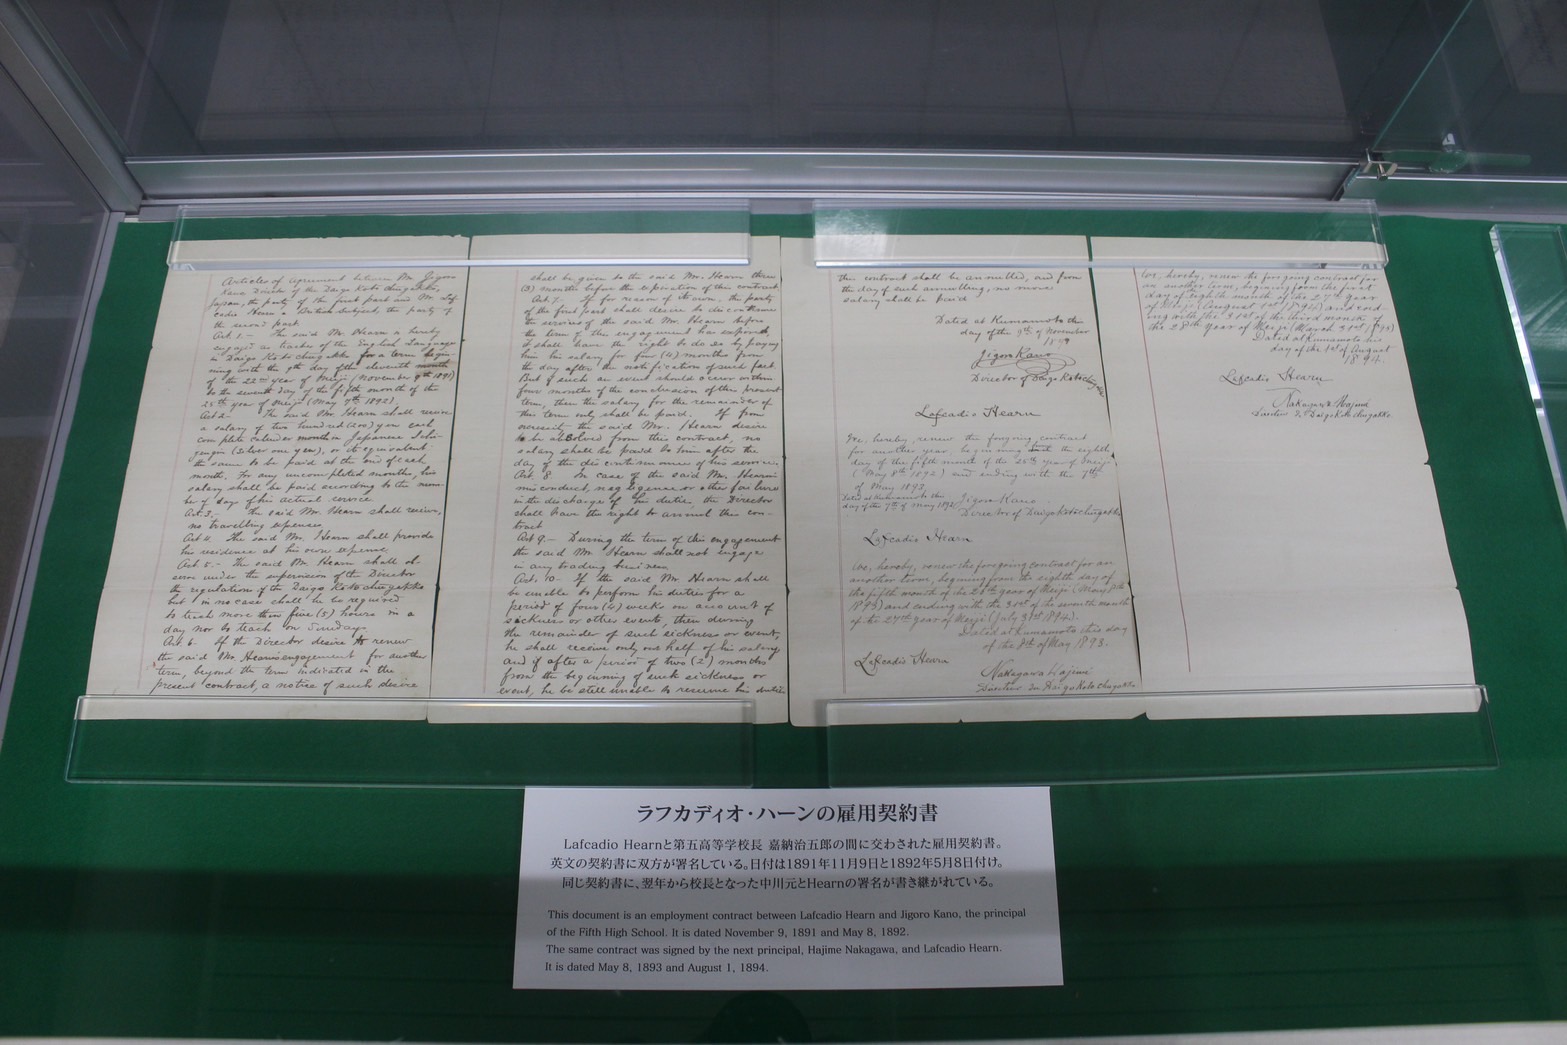 Articles of agreement between Mr. Jigoro
Kano Director of the Daigo Koto chugakko,
Japan, the party of the first part and Mr. Laf-
cadio Hearn a British Subject, the party of
the second part.
Art. 1.- The said Mr. Hearn is hereby
engaged as teacher of the English Language
in Daigo Koto chugakko for a term begin-
ning with the 9th day of the eleventh month
of the year of Meiji (November 9th 1891)
to the seventh day of the fifth month of the
25th year of Meiji (May 7th 1892).
Art. 2.- The said Mr. Hearn shall receive
a salary of two hundred (200) yen each
complete calendar month in Japanese
(silver one yen), or its equivalent
the same to be paid at the end of each
month. For any uncompleted months, his
salary shall be paid according to the num-
ber of days of his actual service
Art. 3.- The said Mr. Hearn shall receive,
no travelling expenses,
Art. 4. The said Mr. Hearn shall provide
his residence at his own expense,
Art. 5.- The said Mr. Hearn shall ob-
serve under the supervision of the Director
the regulations of the Daigo Koto chugakko
but in no case shall he be required
to teach more than five (5) hours in a
day nor to teach on Sundays
Art. 6. If the Director desire to renew
the said Mr. Hearn's engagement for another
term, beyond the term indicated in the
present contract, a notice of such desire
shall be given to the said Mr. Hearn three
(3) months before the expiration of this contract
Art. 7. If for reason of its own, the party
of the first part shall desire to discontinue
the services of the said Mr. Hearn before
the term of the engagement has expired
it shall have the right to do so by paying
him his salary for four (4) months from
the day after the notification of such fact.
But if such an event should occur within
four months of the conclusion of the present
term, then the salary for the remainder of
this term only shall be paid. If from
necessity the said Mr. Hearn desire
to be absolved from this contract, no
salary shall be paid to him after the
day of the discontinuance of his service.
Art. 8. In case of the said Mr. Hearn's
misconduct, negligence or other failure
in the discharge of his duties, the Director
shall have the right to annul this con-
tract
Art. 9.- During the term of this engagement
the said Mr. Hearn shall not engage
in any trading business,
Art. 10- If the said Mr Hearn shall
be unable to perform his duties for a
period of four (4) weeks on account of
sickness or other event, then during
the remainder of such sickness or event,
he shall receive only one half of his salary
and if after a period of two (2) months
from the beginning of such sickness or
event, he be still unable to resume his duties
this contract shall be annulled, and from
the day of such annulling, no more
salary shall be paid
Dated at Kumamoto the
day of the 9th of November
Jigoro Kano
Director of Daigo Kotochugakko
Lafcadio Hearn
We, hereby, renew the foregoing contract
for another year beginning the eighth
day of the fifth month of the 25th year of Meiji
(May 8th 1892) and ending with the 7th
of May 1893.
Dated at Kumamoto this
day of the 7th of May 1892
Jigoro Kano
Director of Daigo Kotochugakko
Lafcadio Hearn
We, hereby, renew the foregoing contract for an
another term, beginning from the eighth day of
the fifth month of the 26th year of Meiji (May 8th
1893) and ending with the 31st of the seventh month
of the 27th year of Meiji (July 31st 1894).
Dated at Kumamoto this day
of the 8th of May 1893.
Lafcadio Hearn
Nakagawa Hajime
Director du Daigo Koto chugakko
We, hereby, renew the foregoing contract for
an another term, beginning from the first
day of eighth month of the 27th year
of Meiji (August 1st 1894) and end-
ing with the 31st of the third month of
the 28th year of Meiji (March 31st 1895)
Dated at Kumamoto
day of the 1st of August
1894.
Lafcadio Hearn
Nakagawa Hajime
Director du Daigo Koto chugakko
ラフカディオ・ハーンの雇用契約書
Lafcadio Hearnと第五高等学校長 嘉納治五郎の間に交わされた雇用契約書。
英文の契約書に双方が署名している。日付は1891年11月9日と1892年5月8日付け。
同じ契約書に、翌年から校長となった中川元とHearnの署名が書き継がれている。
This document is an employment contract between Lafcadio Hearn and Jigoro Kano, the principal
of the Fifth High School. It is dated November 9, 1891 and May 8, 1892.
The same contract was signed by the next principal, Hajime Nakagawa, and Lafcadio Hearn.
It is dated May 8, 1893 and August 1, 1894.